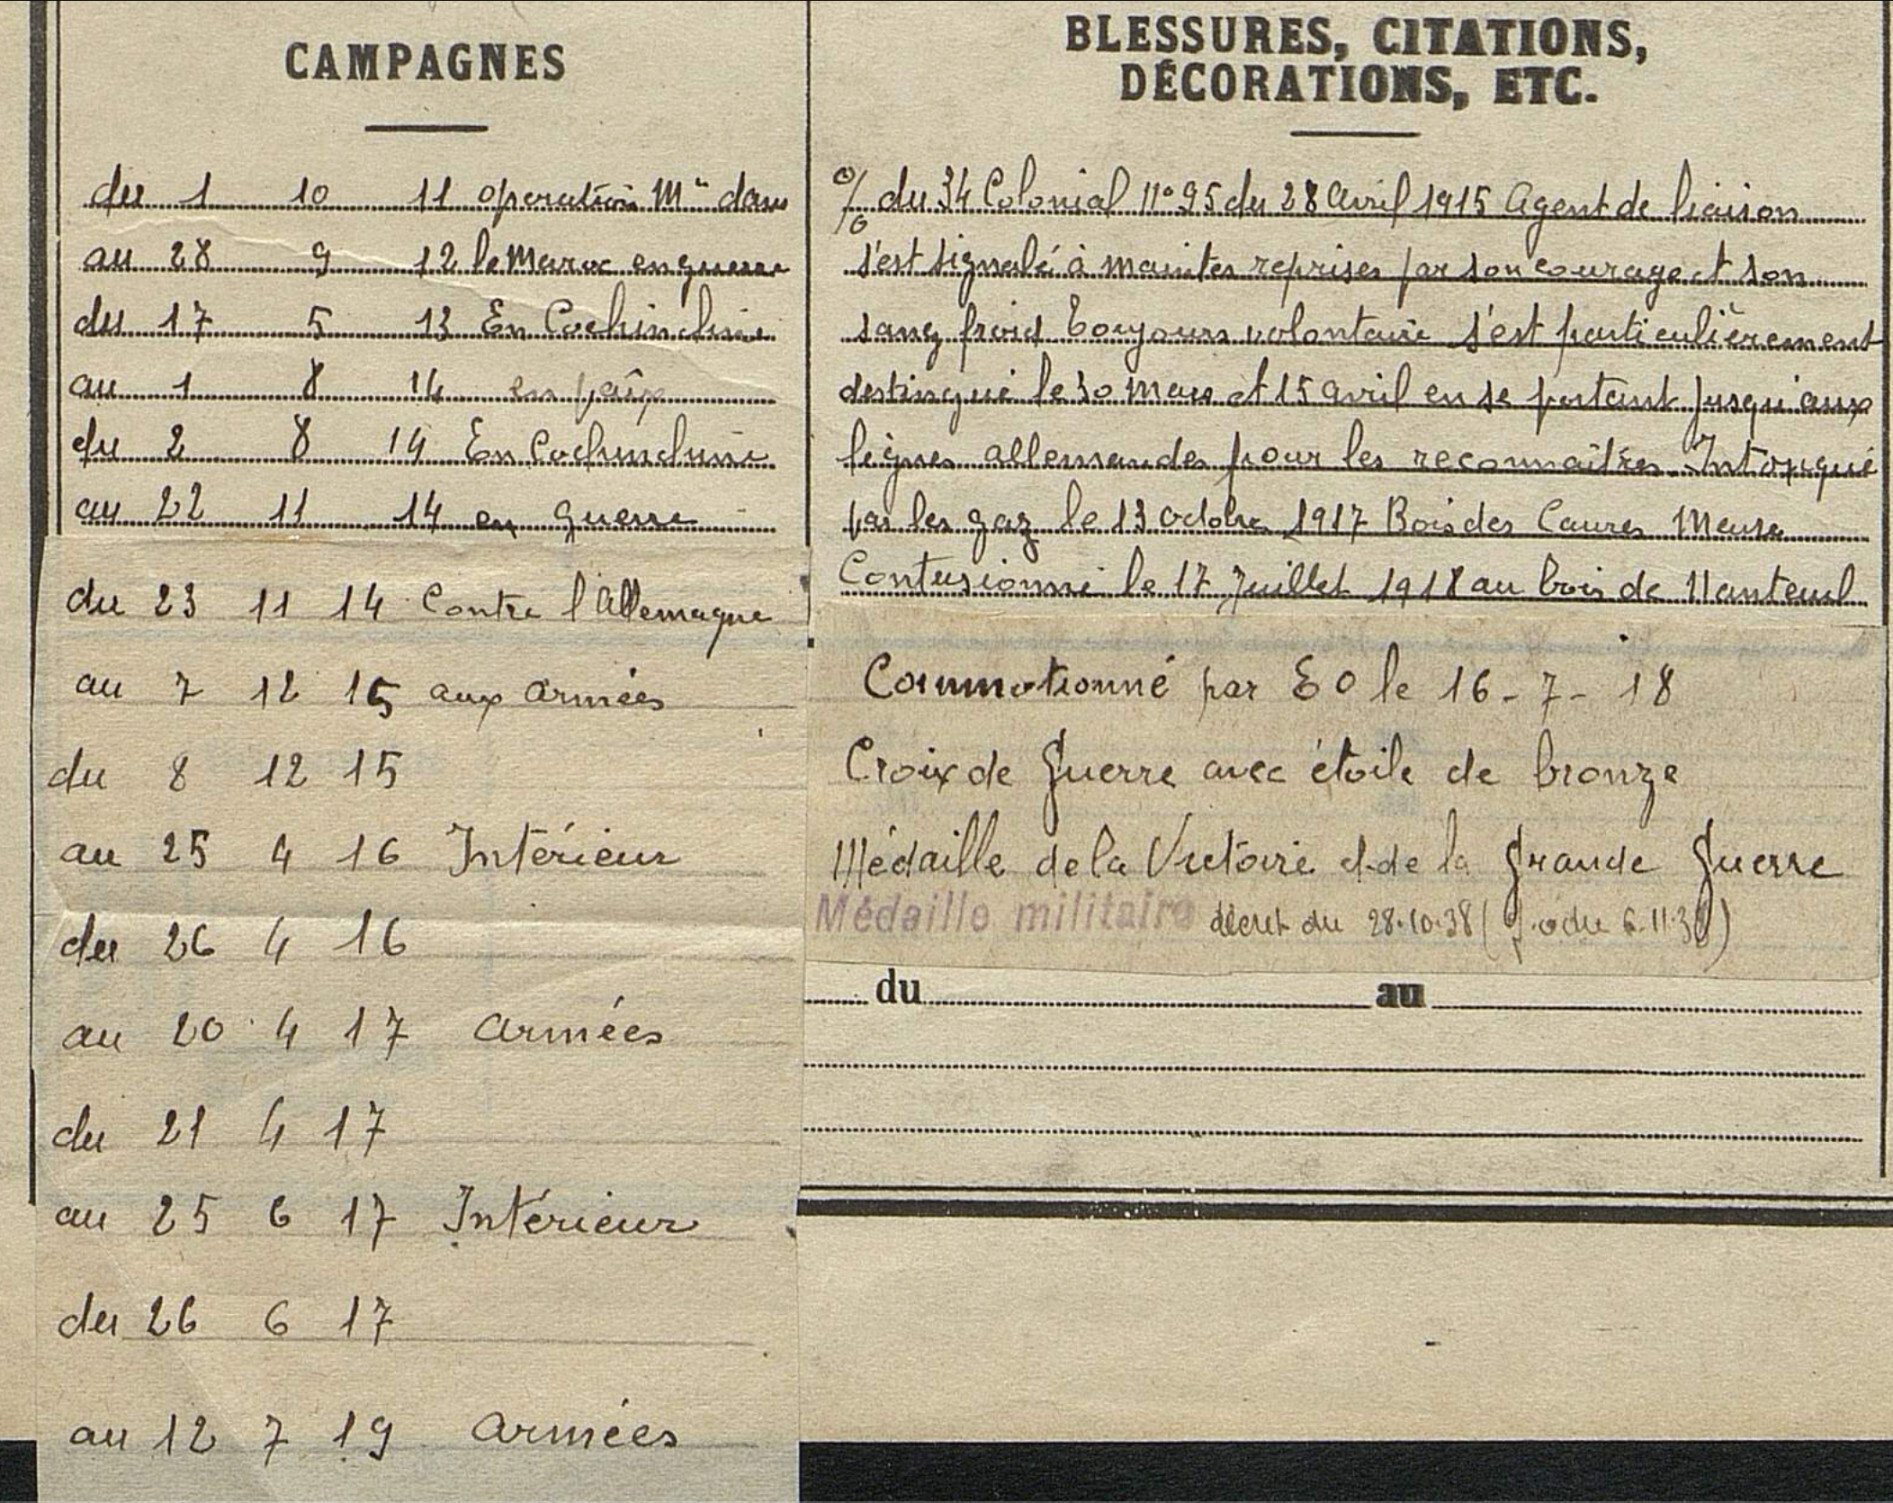 CAMPAGNES
du 1 10 11 operation Mre dans
au 28 9 12 le Maroc en guerre
du 17 5 13 En Cochinchine
au 1 8 14 en paix
du 2 8 14 En Cochinchine
au 22 11 14 en guerre
du 23 11 14 Contre l'Allemagne
au 7 12 15 aux armées
du 8 12 15
au 25 4 16 Intérieur
du 26 4 16
au 20 4 17 armées
du 21 4 17
au 25 6 17 Intérieur
du 26 6 17
au 12 7 19 armées
BLESSURES, CITATIONS,
DÉCORATIONS, ETC.
du 34 Colonial n° 95 du 28 Avril 1915 Agent de liaison
s'est signalé à maintes reprises par son courage et son
sang froid Toujours volontaire s'est particulièrement
destingué le 30 Mars et 15 avril en se portant jusqu'aux
lignes allemandes pour les reconnaître. Intoxiqué
par les gaz le 13 octobre 1917 Bois des Caures Meuse
Contusionné le 17 Juillet 1918 au bois de Nanteuil
Commotionné par E O le 16-7-18
Croix de Guerre avec étoile de bronze
Médaille de la Victoire et de la Grande Guerre
Médaille militaire décret du 28.10.38 (J.O du 6.11.38)
du au